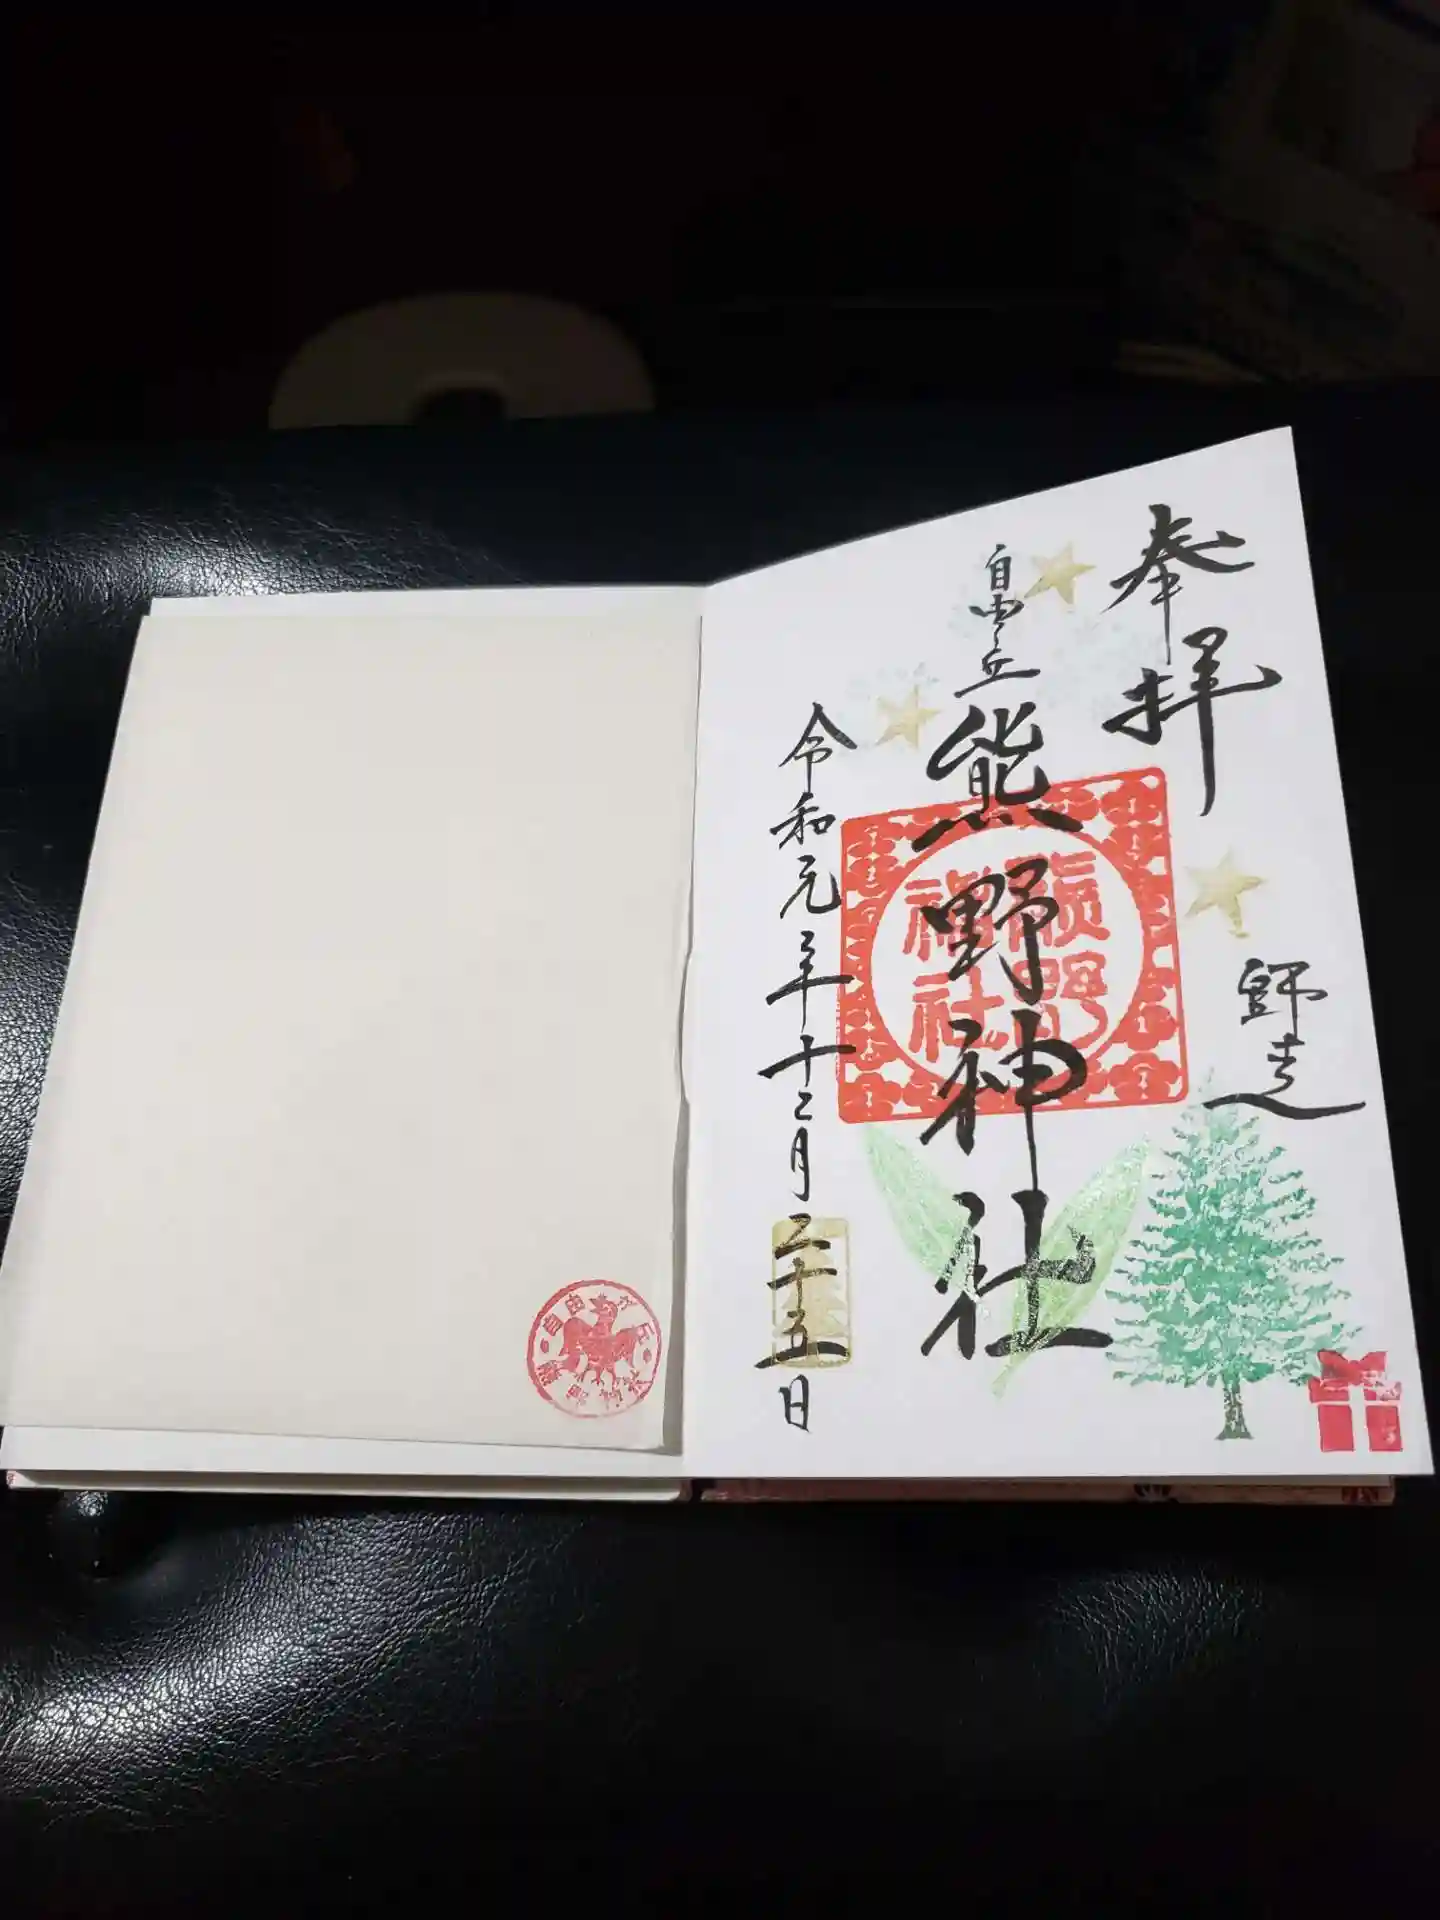 奉拝
師走
自由が丘
熊野神社
熊野
神社
令和元年十二月二十五日
自由ヶ丘
熊野神社